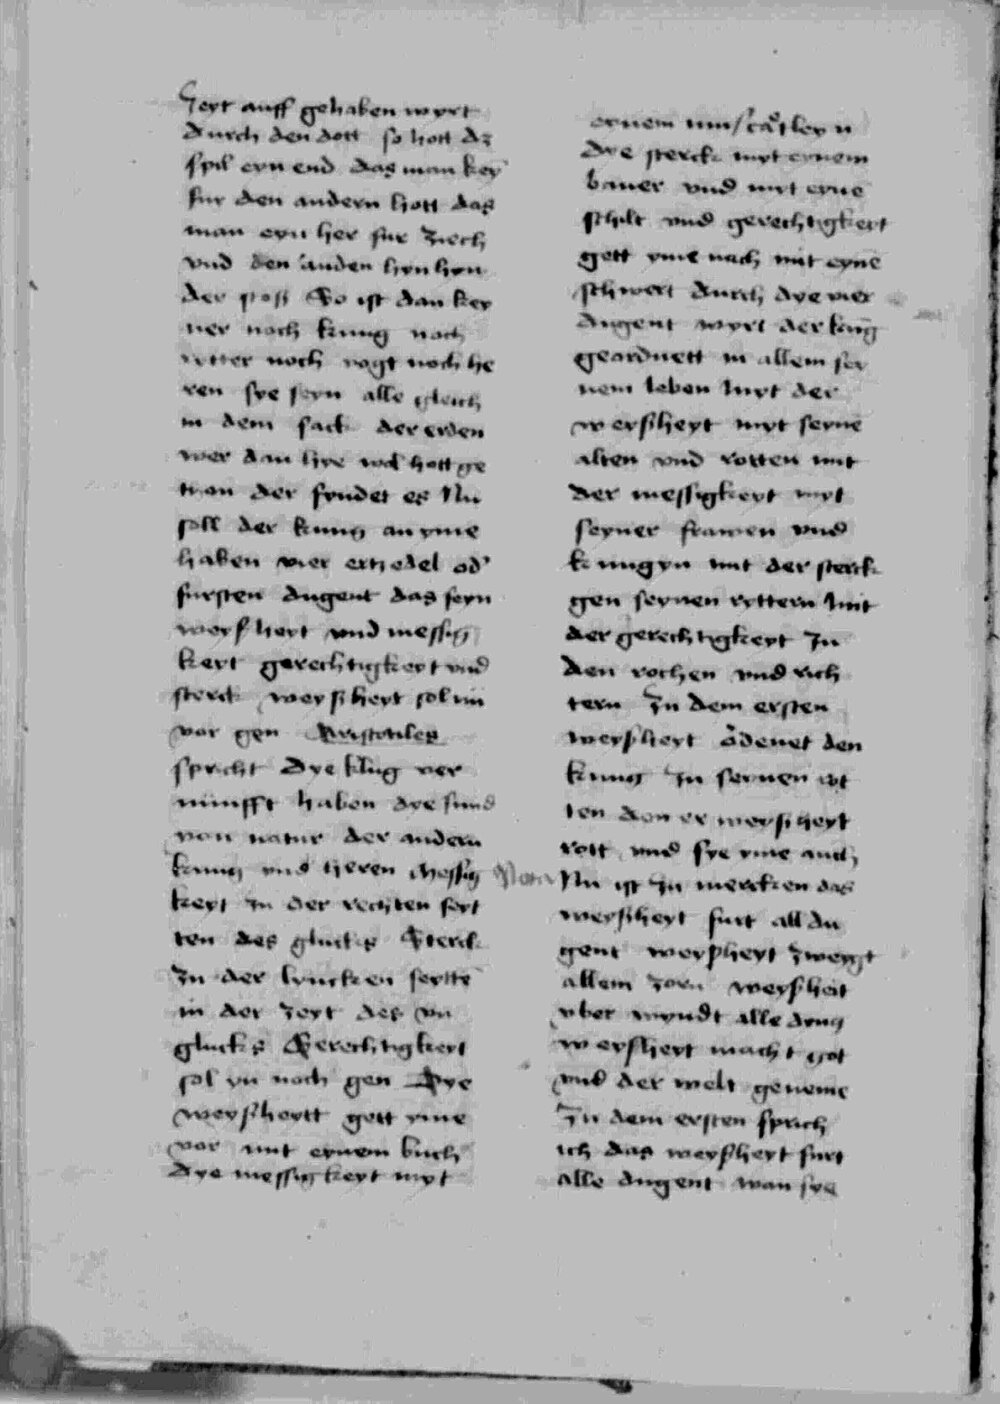 Zeyt auff gehaben wyrt
durch den dott so hott dz
spil eyn end das man key
fur den andern hott das
man eyn her fur ziech
vnd den anden hyn hyn
der stoss So ist dan key
ner noch kunig noch
rytter noch vogt noch he
ren sye seyn alle gleich
in dem sack der erden
wer dan hye wol hott ge
tvon der fyndet es Nu
soll der kunig an yme
haben vier ertz edel od'
fursten dugent das seyn
weysheyt vnd messig
keyt gerechtigkeyt vnd
sterck weysheyt sol im
vor gen Aristotiles
spricht dye klug ver
nunfft haben dye sind
von natur der andern
kunig vnd heren Messig
keyt zu der rechten seyt
ten des glucks Sterck
zu der lyncken seytte
in der zeyt des vn
glucks Gerechtigkeyt
sol yn noch gen Dye
weysheytt gett yme
vor mit eynem buch
dye messigkeyt myt
eynem
dye sterck myt eynem
bauer vnd myt eyne
schilt vnd gerechtigkeyt
gett yme nach mit eyne
schwert durch dye vier
dugent wyrt der kung
geardnett in allem sey
nem leben Myt der
weysheyt myt seyne
alten vnd rotten mit
der messigkeyt myt
seyner frawen vnd
kungyn mit der sterck
gen seynen ryttern Mit
der gerechtigkeyt zu
den rochen vnd rich
tern Zu dem ersten
weysheyt odenet den
kunig zu seynen rot
ten den er weysheyt
rott vnd sye yme auch
Nota Nu ist zu mercken das
weysheyt furt all du
gent weysheyt zweygt
allem zorn weysheit
vber wyndt alle ding
weysheyt macht got
vnd der welt geneme
Zu dem ersten sprich
ich das weysheyt furt
alle dugent wan sye